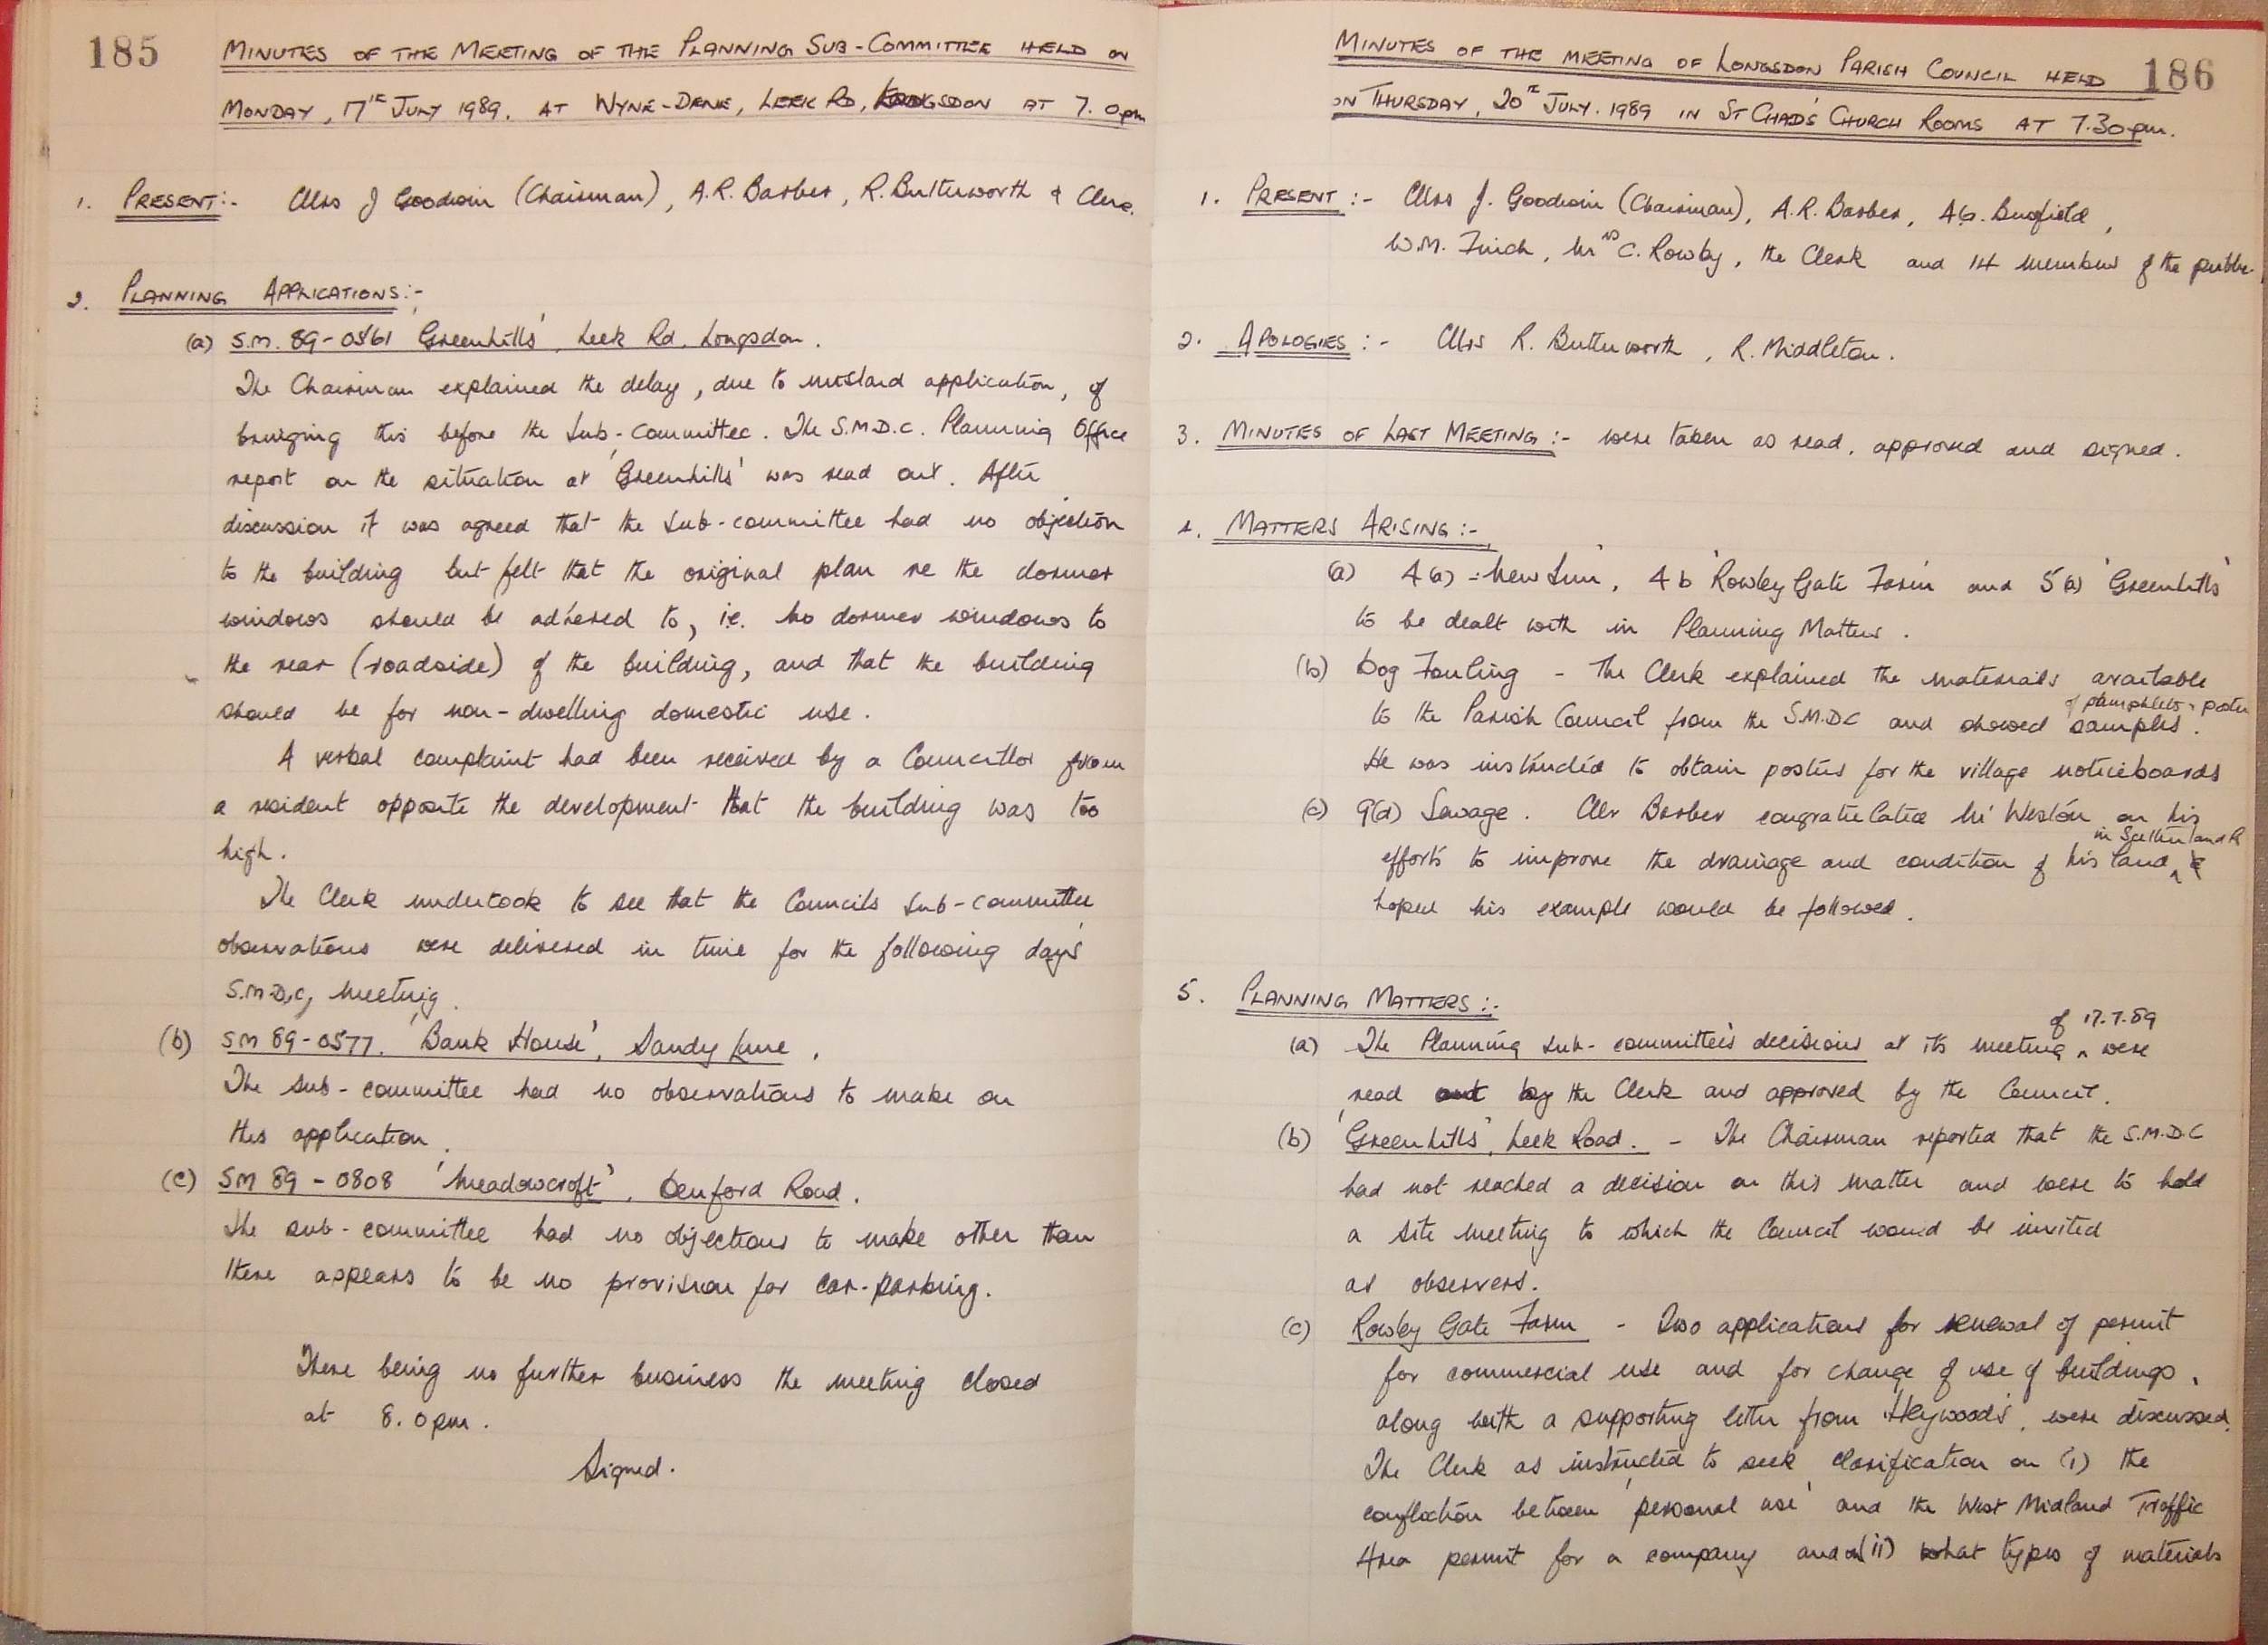 185
MINUTES OF THE MEETING OF THE PLANNING SUB-COMMITTEE HELD ON
MONDAY, 17TH JULY 1989. AT WYNE-DENE, LEEK RD, LONGSDON AT 7.0pm
1. PRESENT:- Cllrs J Goodwin (Chairman), A.R. Barber, R. Butterworth & Clerk.
2. PLANNING APPLICATIONS:-
(a) S.M. 89-0561 'Greenhills', Leek Rd. Longsdon.
The Chairman explained the delay, due to mislaid application, of
bringing this before the Sub-committee. The S.M.D.C. Planning Office
report on the situation at 'Greenhills' was read out. After
discussion it was agreed that the Sub-committee had no objection
to the building but felt that the original plan re the dormer
windows should be adhered to, i.e. No dormer windows to
the rear (roadside) of the building, and that the building
should be for non-dwelling domestic use.
A verbal complaint had been received by a Councillor from
a resident opposite the development that the building was too
high.
The Clerk undertook to see that the Councils Sub-committee
observations were delivered in time for the following day's
S.M.D.C, Meeting.
(b) SM 89-0577. 'Bank House', Sandy Lane,
The sub-committee had no observations to make on
this application.
(c) SM 89-0808 'Meadowcroft', Denford Road.
The sub-committee had no objections to make other than
there appears to be no provision for car-parking.
There being no further business the meeting closed
at 8.0pm.
Signed.
186
MINUTES OF THE MEETING OF LONGSDON PARISH COUNCIL HELD
ON THURSDAY, 20TH JULY. 1989 IN ST CHAD'S CHURCH ROOMS AT 7.30pm.
1. PRESENT:- Cllrs J. Goodwin (Chairman), A.R. Barber, A.G. Busfield,
W.M. Finch, Mrs C. Rowby, the Clerk and 14 members of the public.
2. APOLOGIES:- Cllrs R. Butterworth, R. Middleton.
3. MINUTES OF LAST MEETING:- were taken as read, approved and signed.
4. MATTERS ARISING:-
(a) 4(a) - 'New Inn', 4b 'Rowley Gate Farm' and 5(a) 'Greenhills'
to be dealt with in Planning Matters.
(b) Dog Fouling - The Clerk explained the materials available
to the Parish Council from the S.M.D.C and showed samples of pamphlets & poster.
He was instructed to obtain posters for the village noticeboards
(c) 9(d) Sewage. Cllr Barber congratulated Mr Weston on his
efforts to improve the drainage and condition of his land in Sutherland R &
hoped his example would be followed.
5. PLANNING MATTERS:-
(a) The Planning Sub-committee's decisions at its meeting of 17.7.89 were
read out by the Clerk and approved by the Council.
(b) 'Greenhills', Leek Road. - The Chairman reported that the S.M.D.C
had not reached a decision on this matter and were to hold
a site meeting to which the Council would be invited
as observers.
(c) Rowley Gate Farm - Two applications for renewal of permit
for commercial use and for change of use of buildings,
along with a supporting letter from 'Heywoods', were discussed.
The Clerk as instructed to seek clarification on (i) the
confliction between 'personal use' and the West Midland Traffic
Area permit for a company and (ii) what types of materials